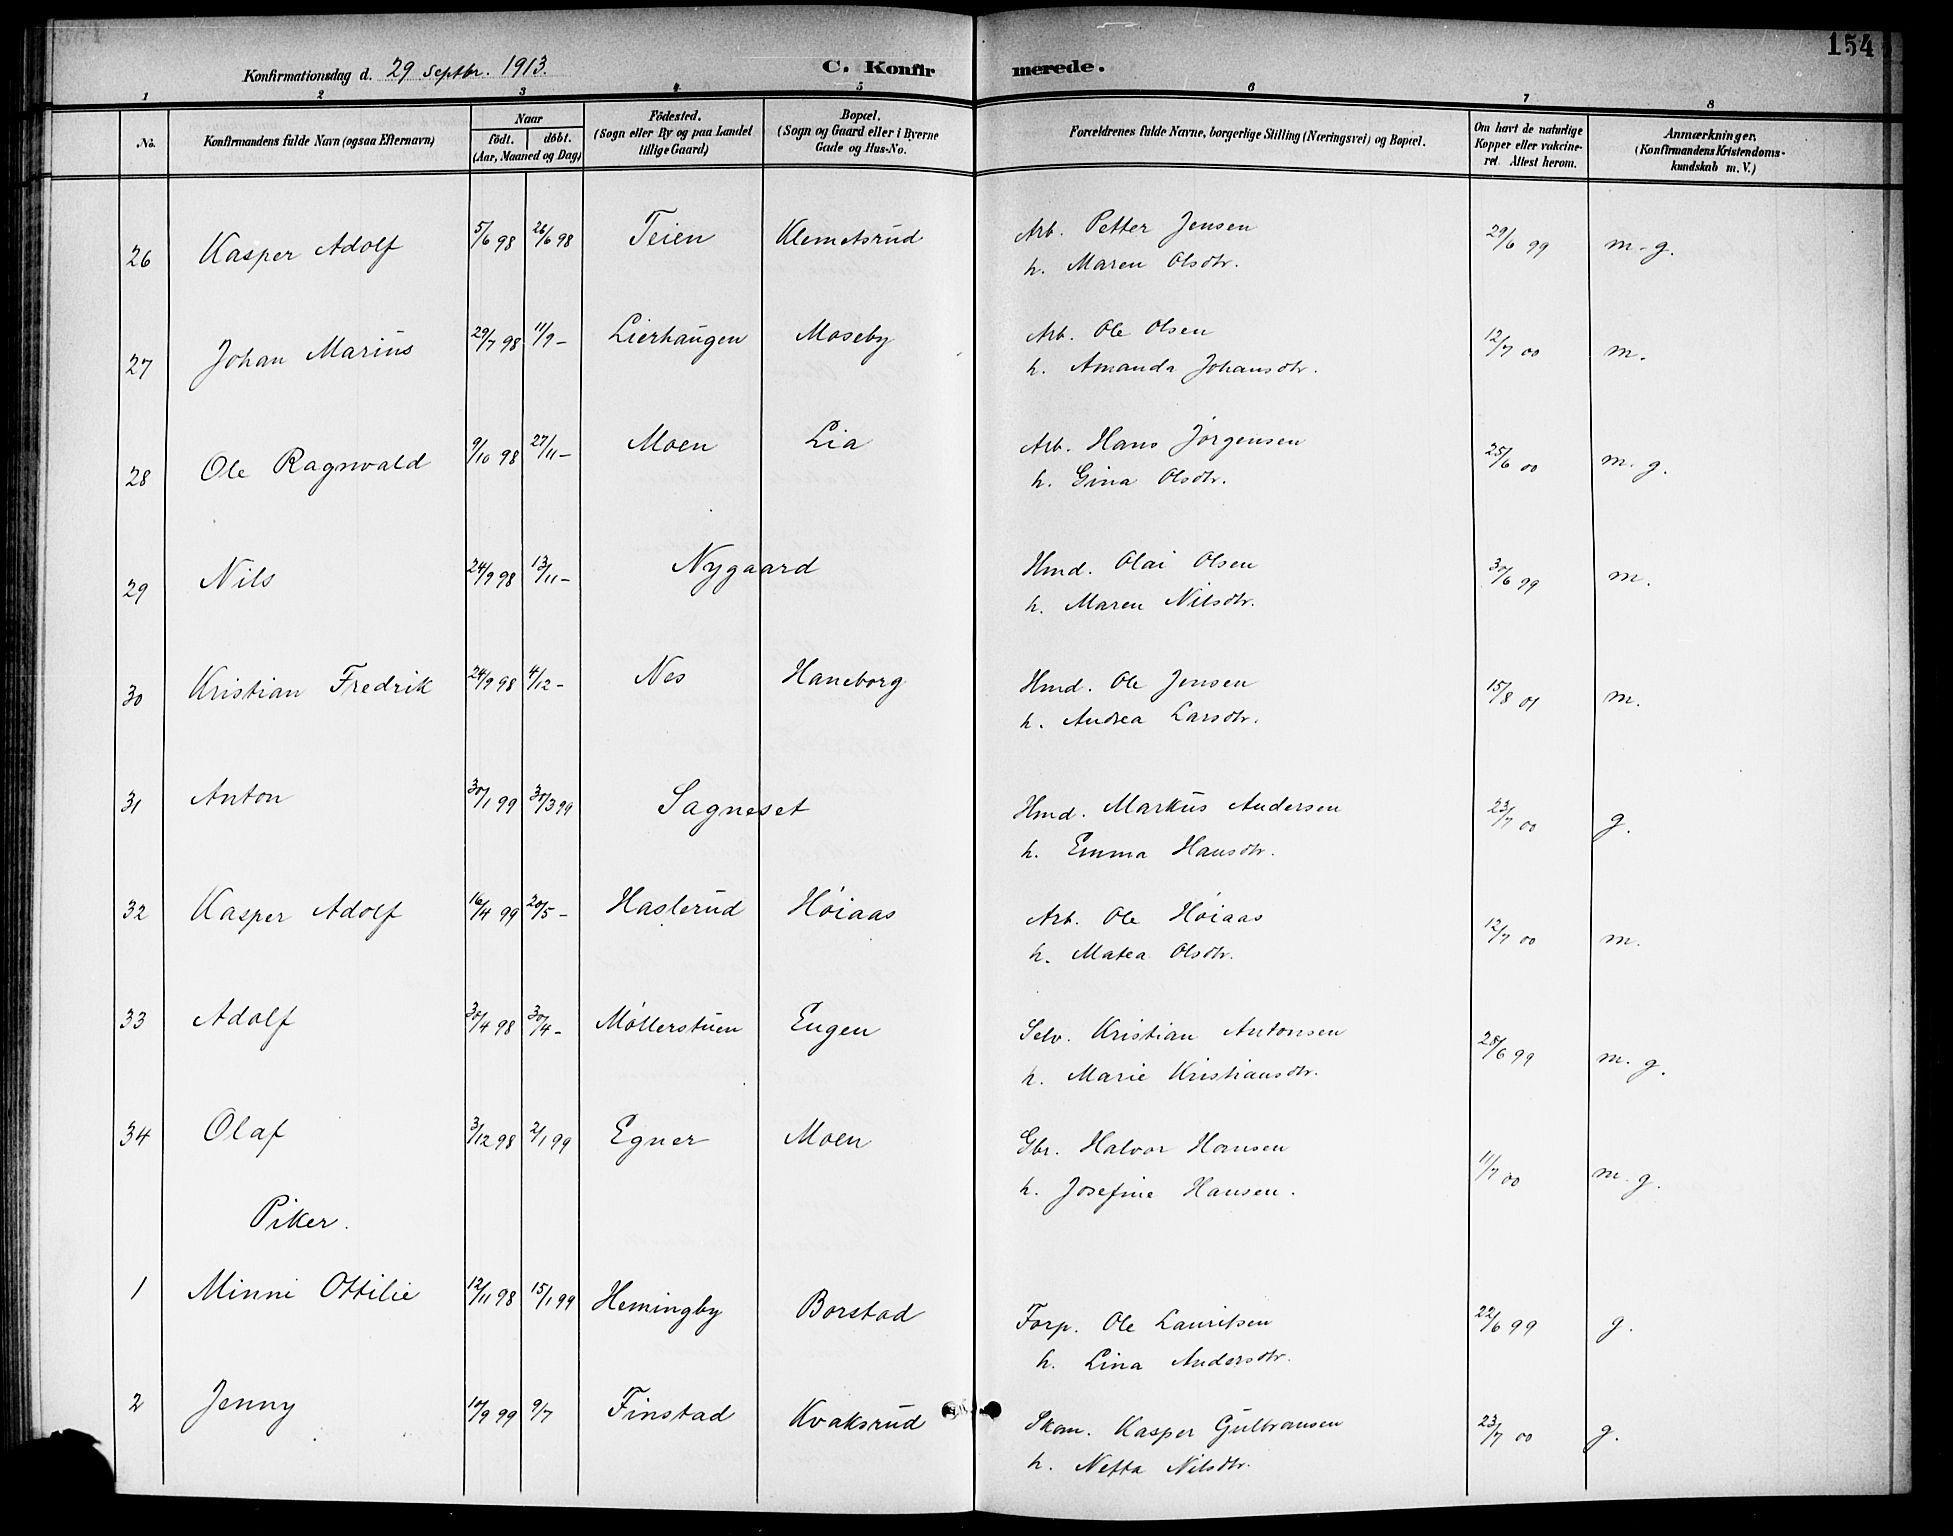 154
Konfirmationsdag d. 29 Septbr. 1913.
C. Konfirmerede.
1 2 3 4 5 6 7 8
No.
Konfirmandens fulde Navn (ogsaa Efternavn)
Naar
født. døbt.
(Aar, Maaned og Dag)
Fødested.
(Sogn eller By og paa Landet
tillige Gaard)
Bopæl.
(Sogn og Gaard eller i Byerne
Gade og Hus-No.
Forældrenes fulde Navne, borgerlige Stilling (Næringsvei) og Bopæl.
Om havt de naturlige
Kopper eller vakcine-
ret. Attest herom.
Anmærkninger.
(Konfirmandens Kristendoms-
kundskab m. V.)
26 Kasper Adolf 5/6 98 26/6 98 Teien Klemetsrud Arb. Petter Jensen 29/6 99 m-g.
h. Maren Olsdtr.
27 Johan Marius 29/7 98 11/9 - Lierhaugen Moseby Arb. Ole Olsen 12/7 00 m.
h. Amanda Johansdtr.
28 Ole Ragnvald 9/10 98 27/11 - Moen Lia Arb. Hans Jørgensen 25/6 00 m. g.
h. Gina Olsdtr.
29 Nils 24/9 98 13/11 - Nygaard Hmd. Olai Olsen 30/6 99 m.
h. Maren Nilsdtr.
30 Kristian Fredrik 24/9 98 4/12 - Nes Haneborg Hmd. Ole Jensen 15/8 01 m.
h. Andrea Larsdtr.
31 Anton 30/1 99 30/3 99 Sagneset Hmd. Markus Andersen 23/7 00 g.
h. Emma Hansdtr.
32 Kasper Adolf 16/4 99 20/5 - Haslerud Høiaas Arb. Ole Høiaas 12/7 00 m.
h. Matea Olsdtr.
33 Adolf 30/4 98 30/4 - Møllerstuen Eugen Selv. Kristian Antonsen 28/6 99 m. g.
h. Marie Kristiansdtr.
34 Olaf 3/12 98 2/1 99 Egner Moen Gbr. Halvor Hansen 11/7 00 m. g.
h. Josefine Hansen.
Piker.
1 Minni Ottilie 12/11 98 15/1 99 Hemingby Borstad Forp. Ole Lauritsen 22/6 99 g.
h. Lina Andersdtr.
2 Jenny 10/9 99 9/7 Finstad Kvaksrud Skom. Kasper Gulbransen 23/7 00 g.
h. Netta Nilsdtr.